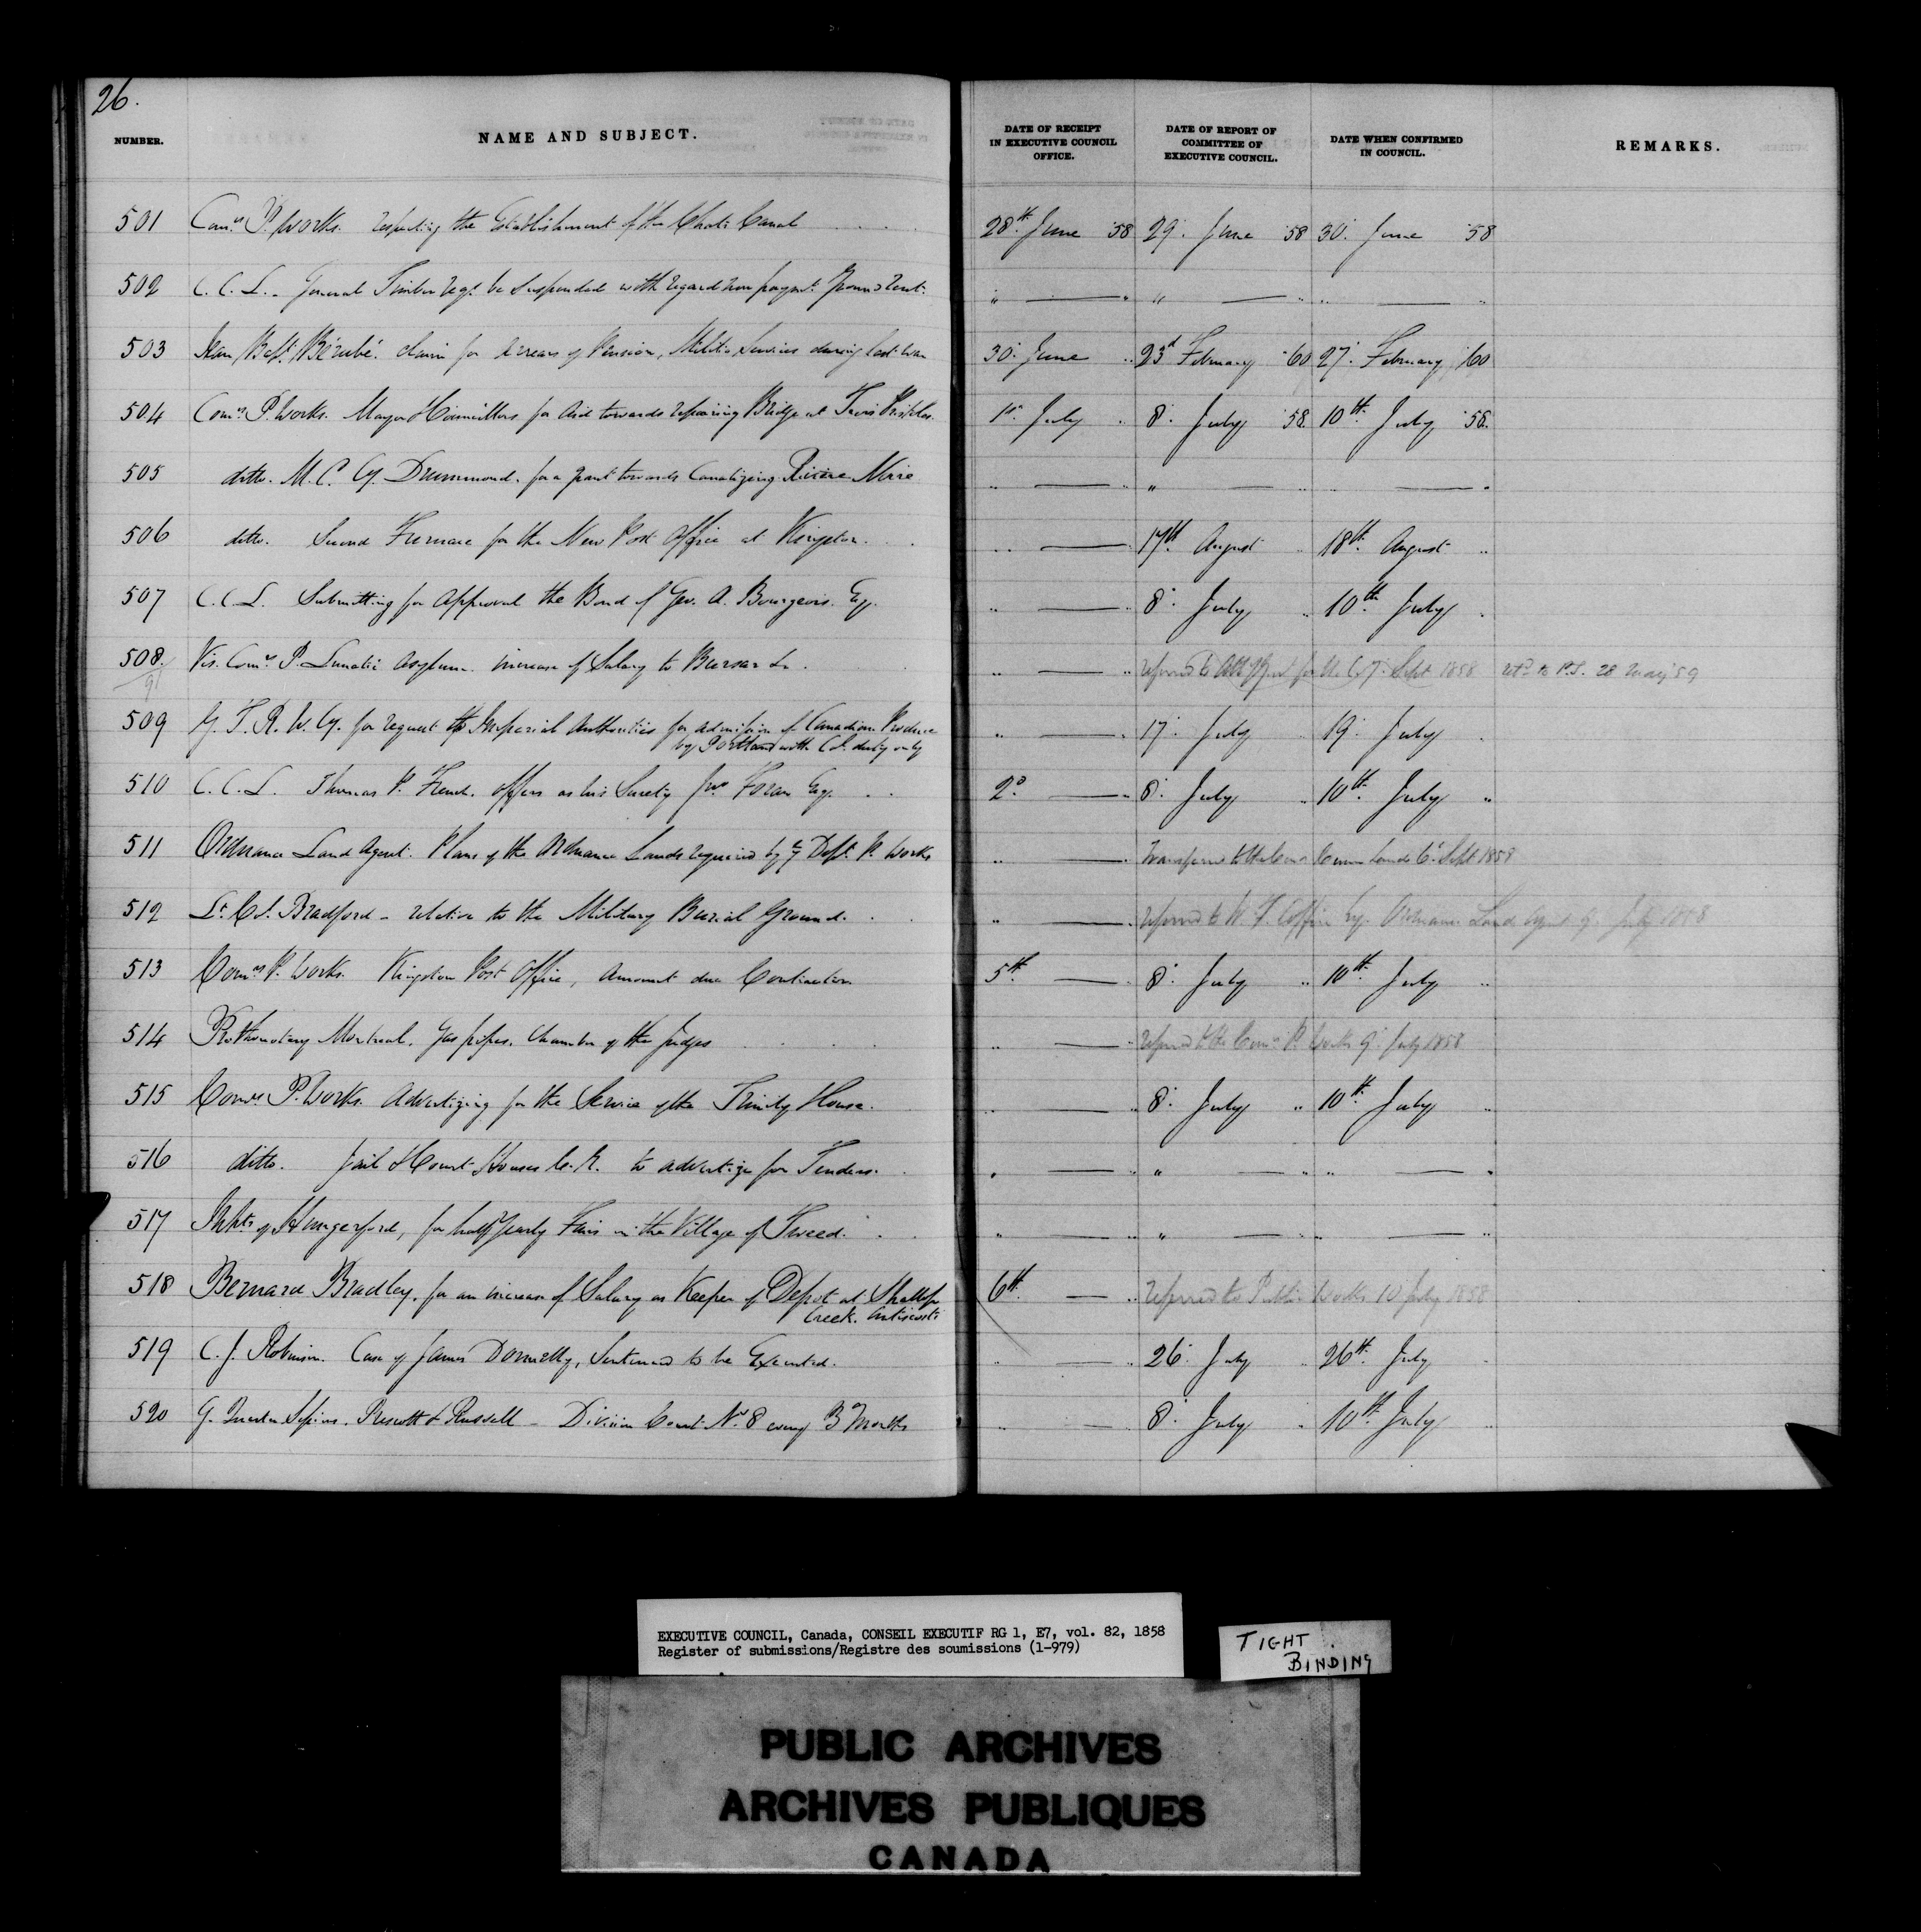 26.
NUMBER. NAME AND SUBJECT. DATE OF RECEIPT IN EXECUTIVE COUNCIL OFFICE. DATE OF REPORT OF COMMITTEE OF EXECUTIVE COUNCIL. DATE WHEN CONFIRMED IN COUNCIL. REMARKS.
501 Comrs P. Works. respecting the Establishment of the Chats Canal . . . . 28th June '58 29. June '58 30. June '58
502 C. C. L. - General Timber regs. be Suspended with regard non paymt. Ground rent. " — " " — " " — "
503 Jean Bapt. Bérubé. claim for Arrears of Pension, Militia Services during last War 30. June " 23d February '60 27. February '60
504 Comrs P. Works. Mayor & Councillors for Aid towards repairing Bridge at Trois Pistoles. 1st July " 8. July '58 10th July '58.
505 ditto. M. C. Cy. Drummond. for a grant towards Canalizing Rivière Noire " — " " — " " — "
506 ditto. Second Furnace for the New Post Office at Kingston. " — " 17th August " 18th August "
507 C. C. L. Submitting for Approval the Bond of Geo. A. Bourgeois. Esq. " — " 8. July " 10th July "
508. Vis. Comrs P. Lunatic Asylum. increase of Salary to Bursar &c. " — " referred to Att. Genl. for U. C. 7. Sept 1858 retd to P.S. 28 May '59
91
509 G. T. R. W. Cy. for request to Imperial Authorities for admission of Canadian Produce " — " 17. July 19. July "
by Portland with Col. duty only
510 C. C. L. Thomas P. French. offers as his Surety Jno Foran Esq. . . 2d. — " 8. July " 10th July "
511 Ordnance Land Agent. Plans of the Ordnance Lands required by Dept. P. Works " — " Transferred to the Comr Crown Lands 6. Sept 1858
512 Lt. Col. Bradford - relative to the Military Burial Ground. . . " — " referred to W. F. Coffin Esq. Ordnance Land Agent 9. July 1858
513 Comrs P. Works. Kingston Post Office, Amount due Contractor 5th. — " 8. July " 10th July "
514 Prothonotary Montreal. Gas pipes. Chamber of the Judges . . . . " — " referred to the Comrs P. Works 9. July 1858
515 Comrs. P. Works. Advertizing for the Service of the Trinity House. " — " 8. July " 10th July "
516 ditto. Jail & Court Houses to advertize for Tenders. " — " " — " " — "
517 Inhts of Hungerford, for half yearly Fairs in the Village of Tweed. . . " — " " — " " — "
518 Bernard Bradley, for an increase of Salary as Keeper of Depot at Shallop 6th. — " referred to Public Works 10 July 1858
Creek. Anticosti
519 C. J. Robinson. Case of James Donnelly, Sentenced to be Executed. " — " 26. July " 26th July "
520 G. Quarter Sessions. Prescott & Russell - Division Court No. 8 every 3 Months " — " 8. July " 10th July "
EXECUTIVE COUNCIL, Canada, CONSEIL EXECUTIF RG 1, E7, vol. 82, 1858
Register of submissions/Registre des soumissions (1-979)
TIGHT
BINDING
PUBLIC ARCHIVES
ARCHIVES PUBLIQUES
CANADA